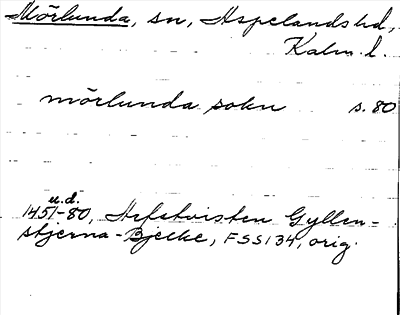 Mörlunda, sn, Aspelands hd,
Kalm. l.
mörlunda sokn s. 80
u.d.
1451-80, Arfstvisten Gyllen-
stjerna-Bjelke, FSS134, orig.